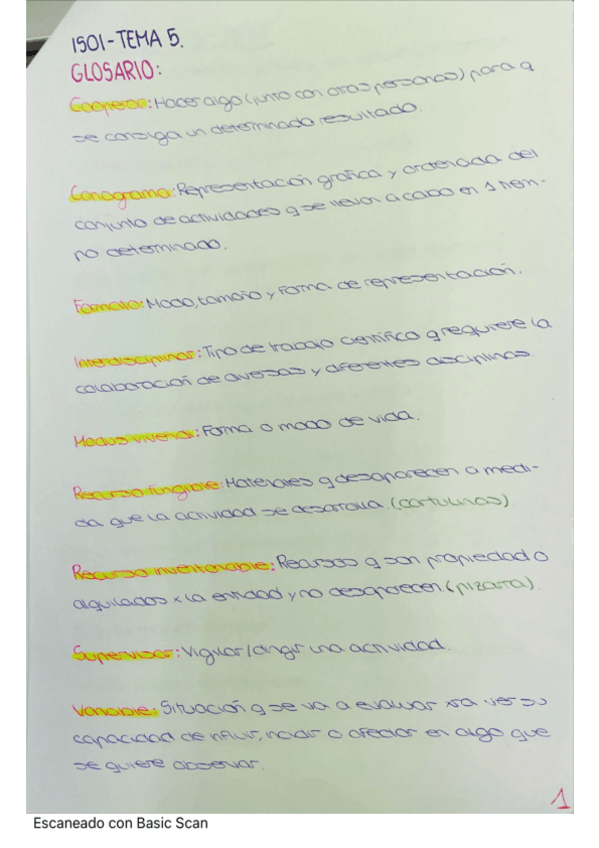 ISO1-TEMA 5.
GLOSARIO:
Cooperar: Hacer algo (junto con otras personas) para q
se consiga un determinado resultado.
Conograma: Representación gráfica y ordenada del
conjunto de actividades q se llevan a cabo en 1 térm-
no determinado.
Formato: Modo, tamaño y forma de representación.
Interdisciplinar: Tipo de trabajo científico q requiere la
colaboración de diversas y diferentes disciplinas.
Modus vivendi: Forma o modo de vida.
Recurso fungible: Materiales q desaparecen a medi-
da que la actividad se desarrolla. (cartulinas)
Recurso inventariable: Recursos q son propiedad o
alquilados x la entidad y no desaparecen. (pizarra)
Supervisar: Vigilar/dirigir una actividad.
Variable: Situación q se va a evaluar xra ver su
capacidad de influir, incidir o afectar en algo que
se quiere observar.
1
Escaneado con Basic Scan